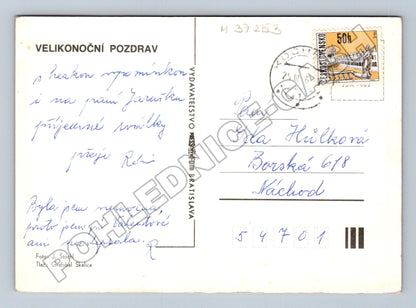 H 37253
VELIKONOČNÍ POZDRAV
s hezkou vzpomínkou
i na přání Jarouška
příjemné svátky
přeje
Byla jsem nemocná
proto jsem
ani nenapsala. R
Foto: J.
Tlač: Skalica
VYDAVATEĽSTVO BRATISLAVA
50h
ČESKOSLOVENSKO
Pí
Hůlková
Borská 618
Náchod
54701
POHLEDNICE